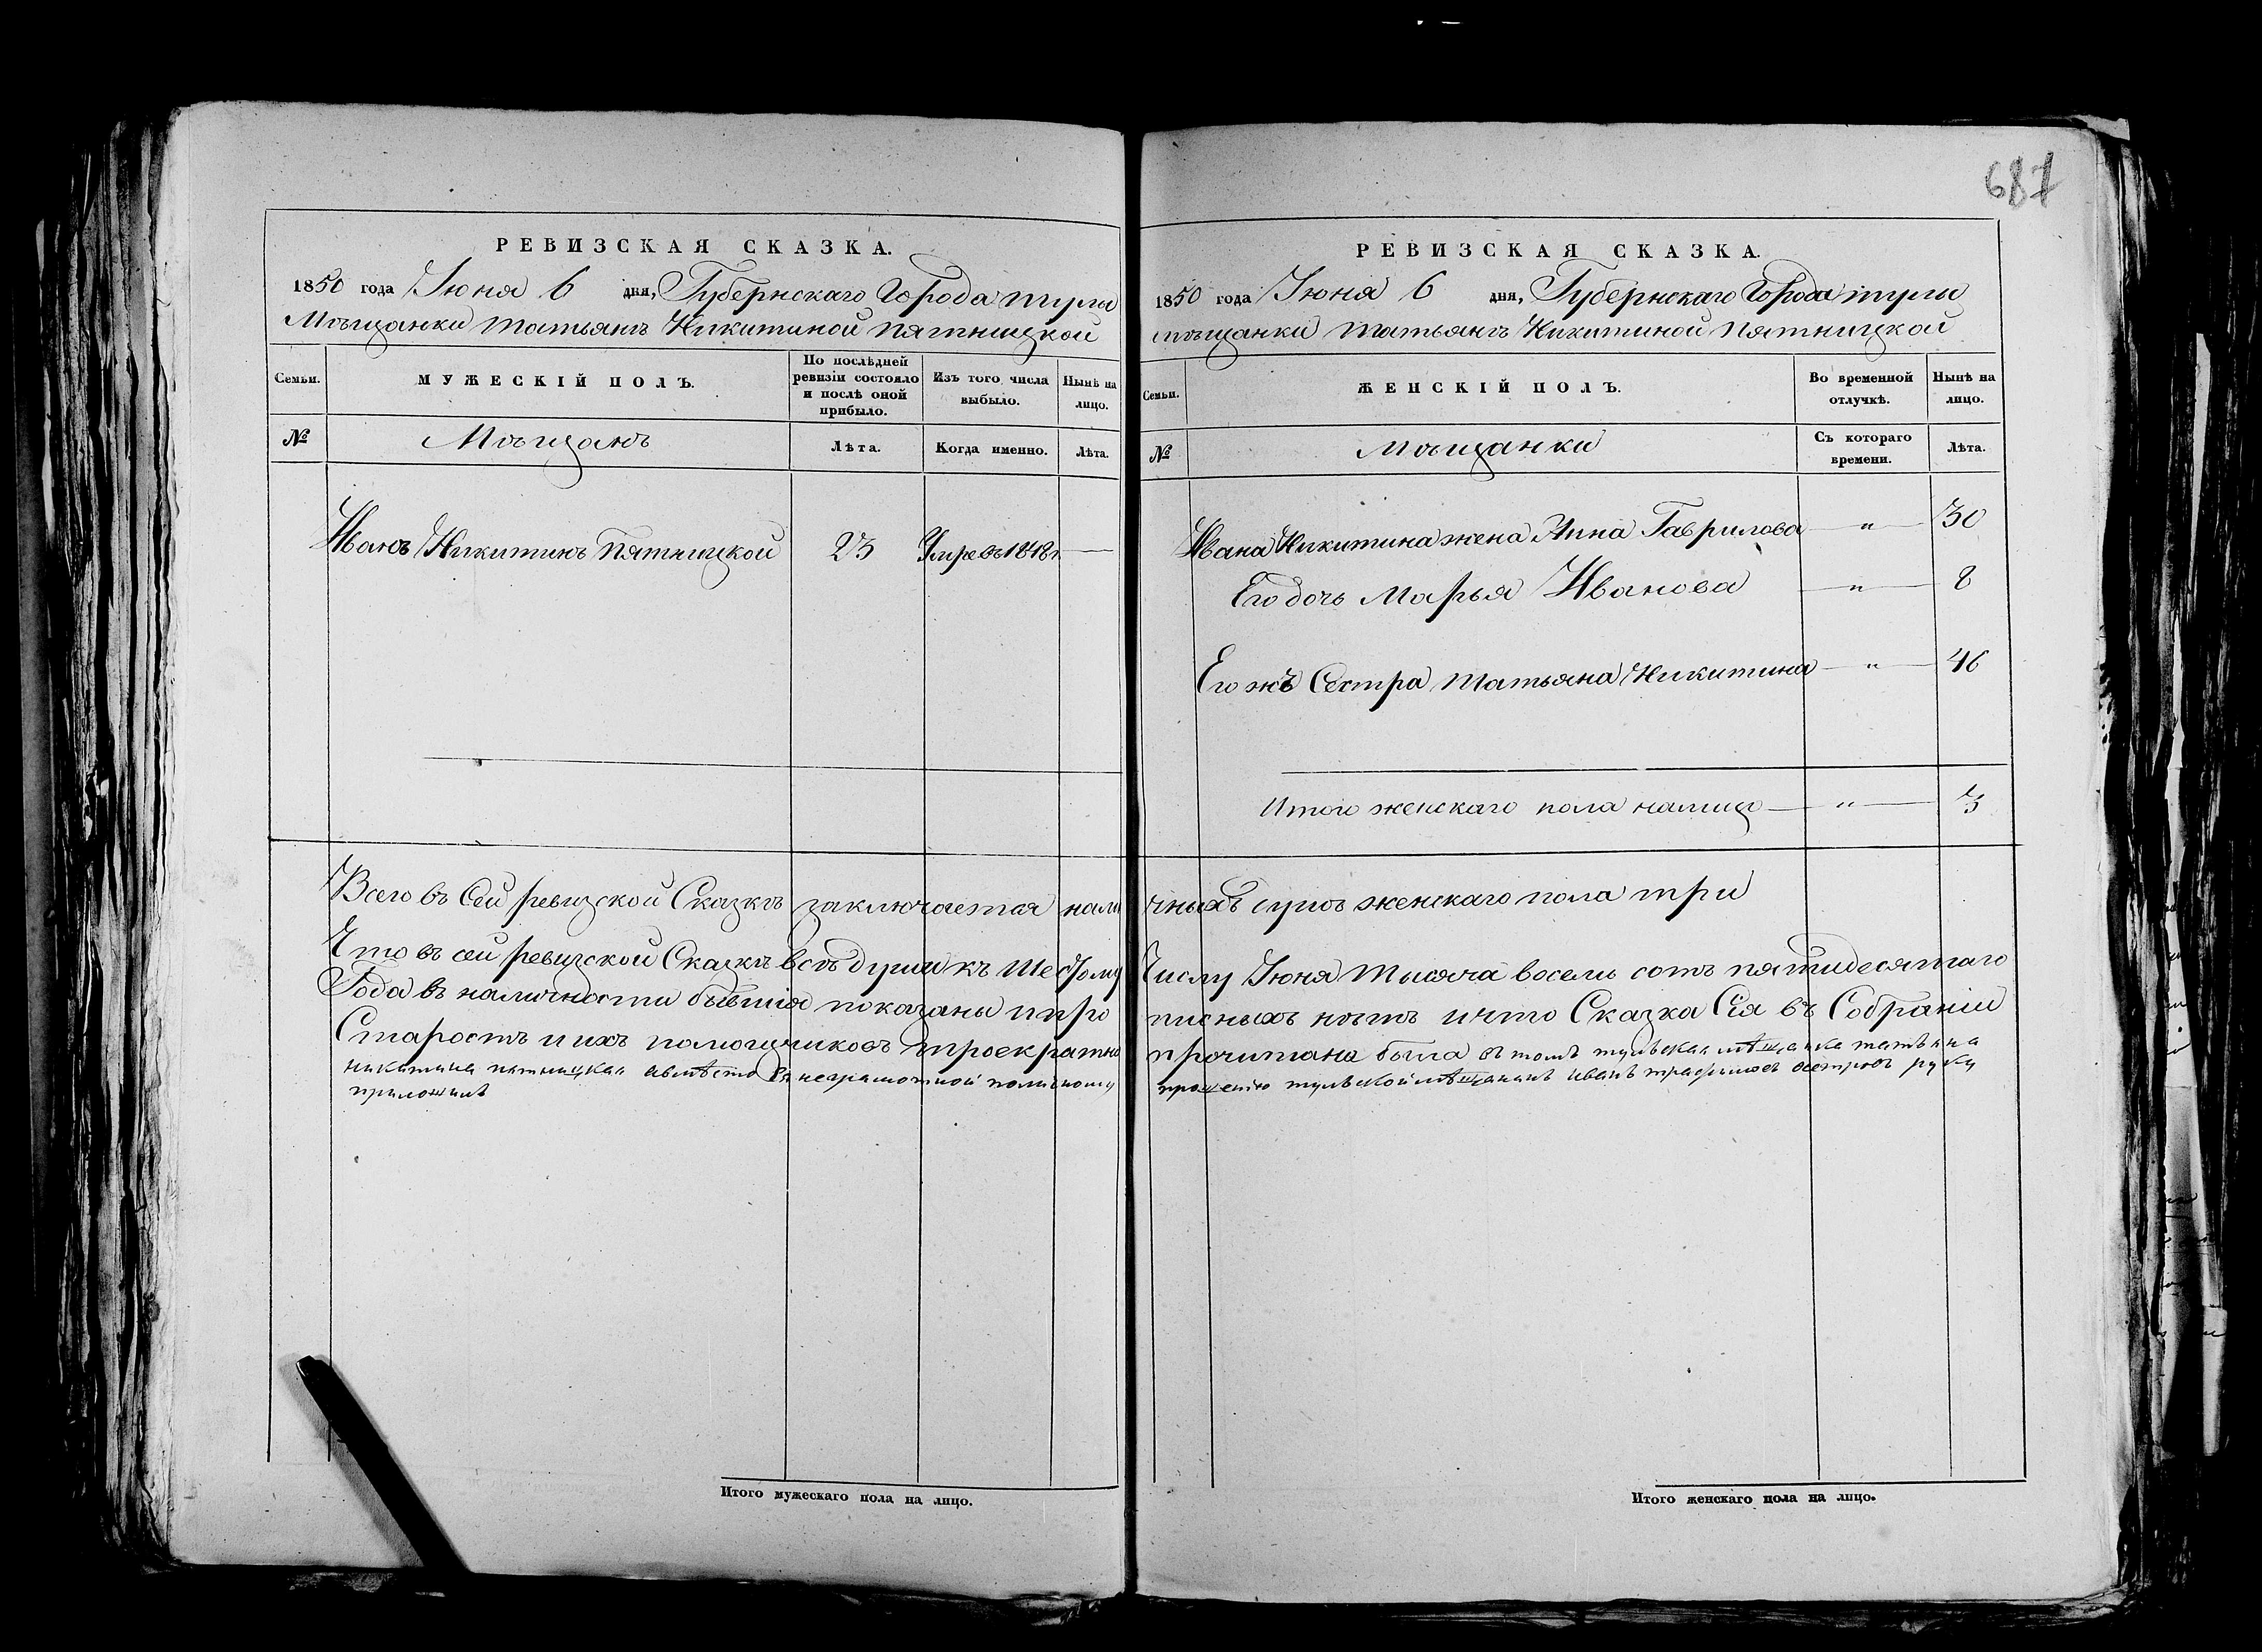 687
РЕВИЗСКАЯ СКАЗКА.
1850 года Іюня 6 дня, Губернскаго Города тулы
Мѣщанки татьянѣ Никитиной пятницкой
Семьи.
МУЖЕСКІЙ ПОЛЪ.
По послѣдней ревизіи состояло и послѣ оной прибыло.
Изъ того числа выбыло.
Нынѣ на лицо.
№
Мѣщанъ
Лѣта.
Когда именно.
Лѣта.
Иванъ Никитинъ Пятницкой 23 Умре въ 1848 г. —
Всего въ Сей ревизской Сказкѣ заключается нали
Что въ сей ревизской Сказкѣ всѣ души къ Шестому
Года въ наличности бывшія показаны и про
Старостѣ и ихъ помощниковъ троекратно
никитина пятницкая авмѣсто ея неграмотной поличному
приложилъ
Итого мужескаго пола на лицо.
РЕВИЗСКАЯ СКАЗКА.
1850 года Іюня 6 дня, Губернскаго Города тулы
мѣщанки татьянѣ Никитиной пятницкой
Семьи.
ЖЕНСКІЙ ПОЛЪ.
Во временной отлучкѣ.
Нынѣ на лицо.
№
Мѣщанки
Съ котораго времени.
Лѣта.
Ивана Никитина жена Анна Гаврилова — " — 30
Его дочь Марья Иванова — " — 8
Его жъ Сестра татьяна Никитина — " — 46
Итого женскаго пола налицо — " — 3
чныхъ душъ женскаго пола три
Числу Іюня тысяча восемь сотъ пятидесятаго
писныхъ нѣтъ и что Сказка Сія въ Собраніи
прочитана была въ томъ тульская мѣщанка татьяна
прошению тульской мѣщананъ иванъ осетровъ руку
Итого женскаго пола на лицо.